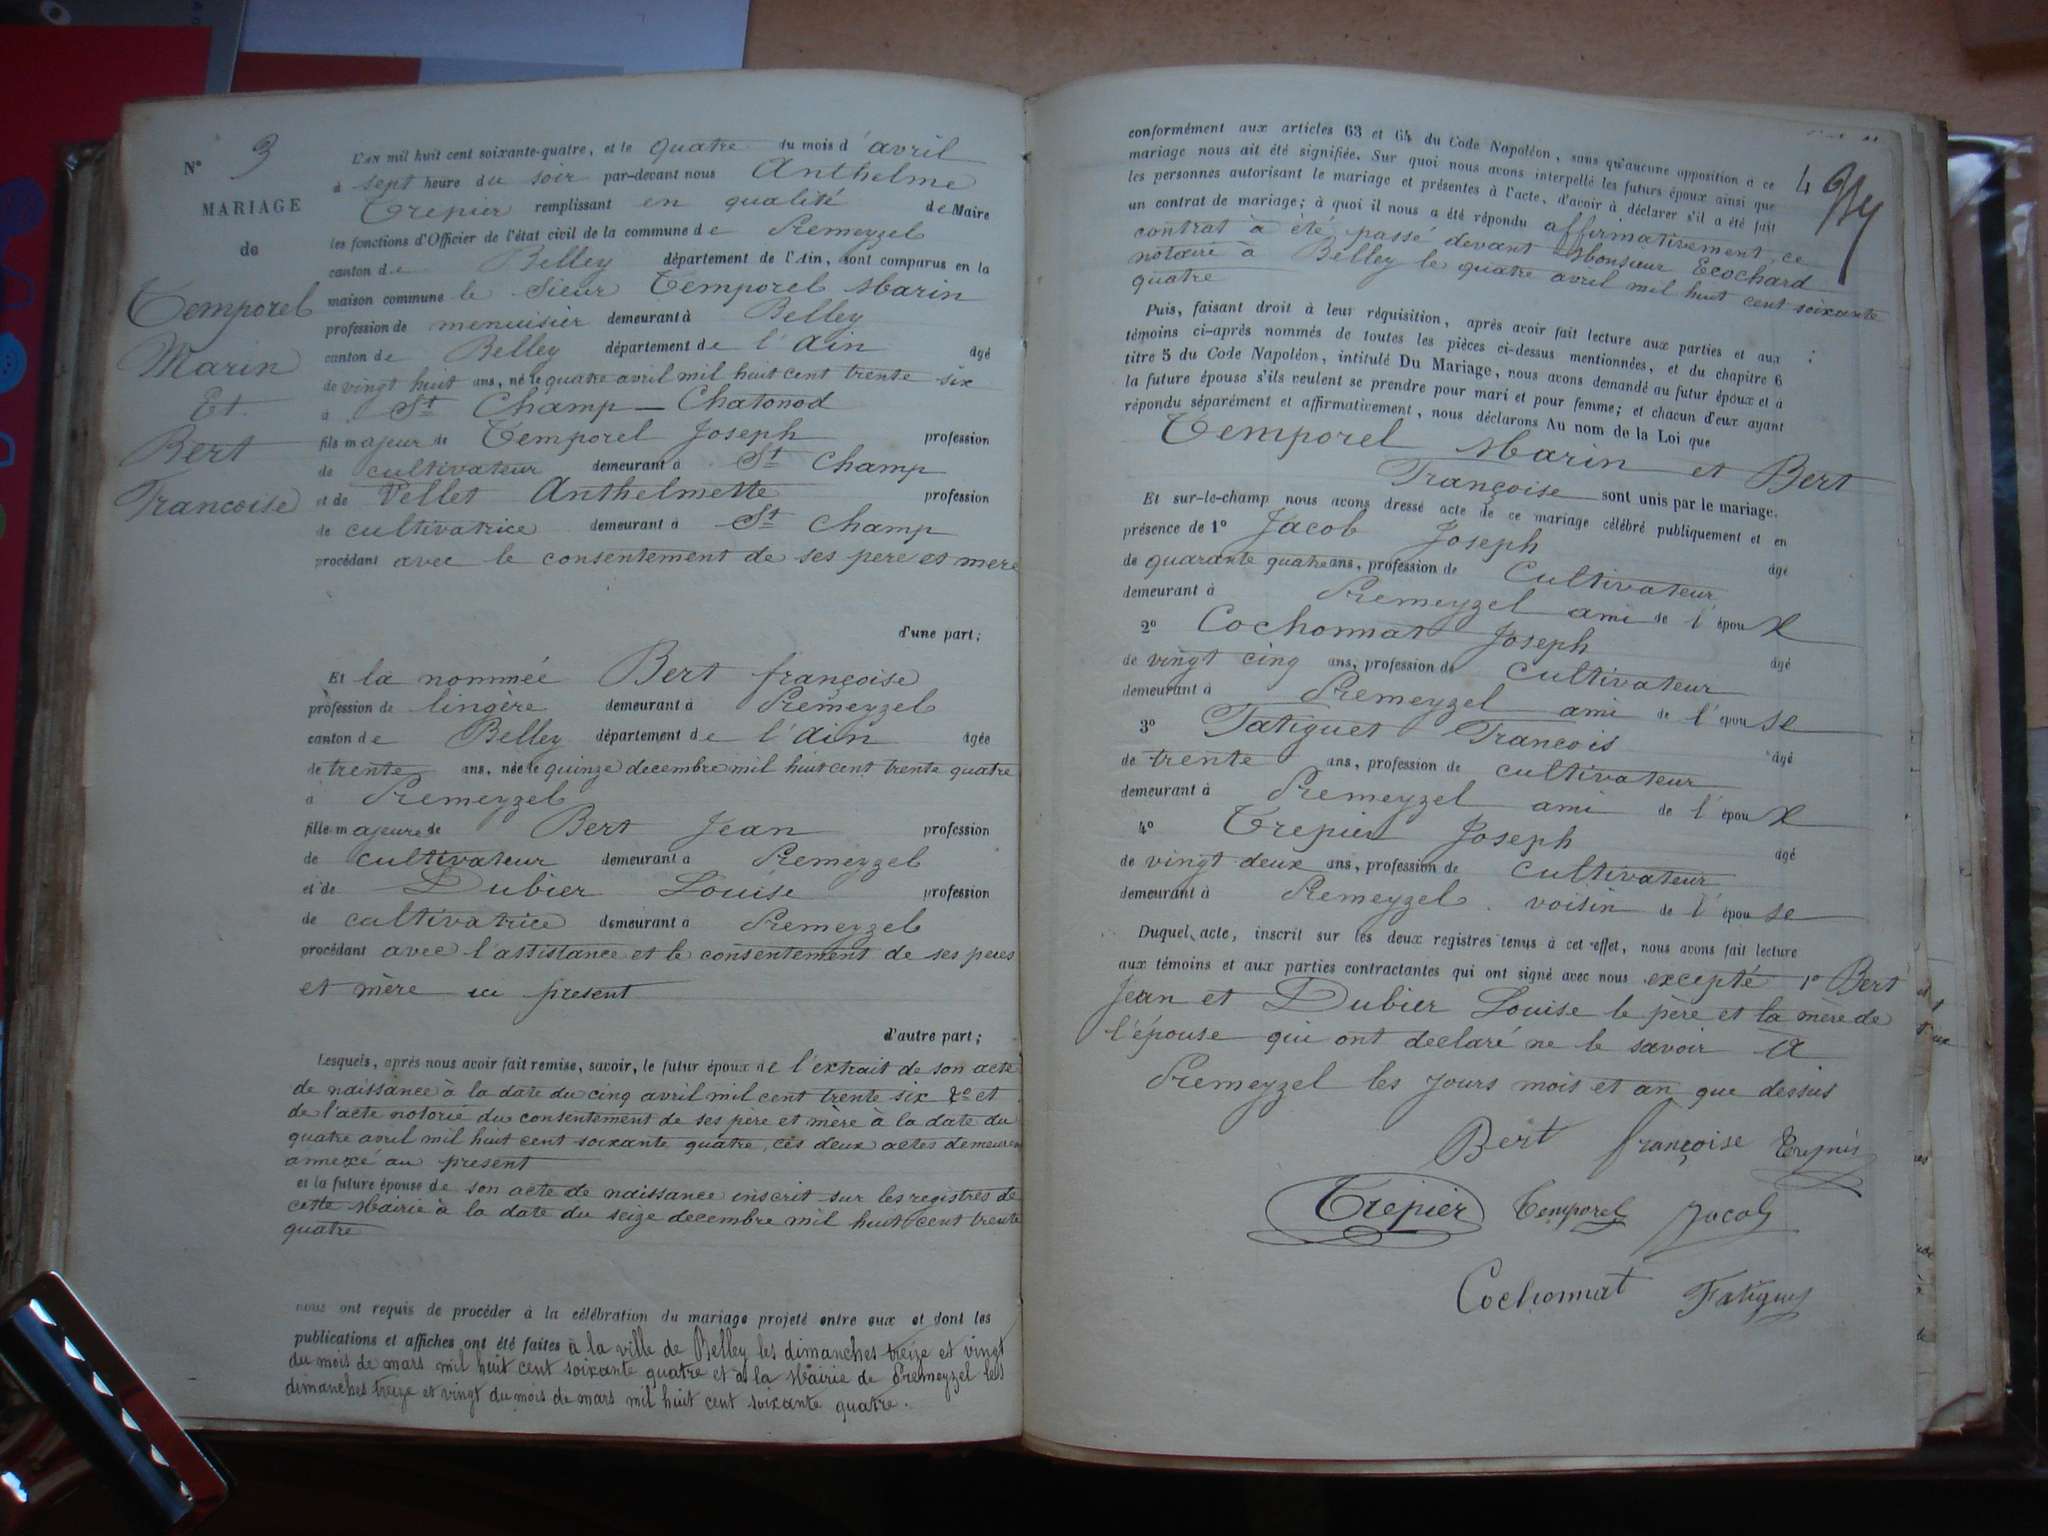 N° 3
MARIAGE
de
Temporel
Marin
Et
Bert
Francoise
L'AN mil huit cent soixante-quatre, et le quatre du mois d'avril
à sept heure du soir par-devant nous Anthelme
Trepier remplissant en qualité de Maire
les fonctions d'Officier de l'état civil de la commune de Premeyzel
canton de Belley département de l'Ain, sont comparus en la
maison commune le Sieur Temporel Marin
profession de menuisier demeurant à Belley
canton de Belley département de l'Ain âgé
de vingt huit ans, né le quatre avril mil huit cent trente six
à St Champ - Chatonod
fils majeur de Temporel Joseph profession
de cultivateur demeurant à St Champ
et de Vellet Anthelmette profession
de cultivatrice demeurant à St Champ
procédant avec le consentement de ses pere et mere
d'une part;
Et la nommée Bert françoise
profession de lingère demeurant à Premeyzel
canton de Belley département de l'Ain âgée
de trente ans, née le quinze decembre mil huit cent trente quatre
à Premeyzel
fille majeure de Bert Jean profession
de cultivateur demeurant à Premeyzel
et de Dubier Louise profession
de cultivatrice demeurant à Premeyzel
procédant avec l'assistance et le consentement de ses peres
et mère ici present
d'autre part;
Lesquels, après nous avoir fait remise, savoir, le futur époux de l'extrait de son acte
de naissance à la date du cinq avril mil cent trente six 2° et
de l'acte notorié du consentement de ses père et mère à la date du
quatre avril mil huit cent soixante quatre, ces deux actes demeurent
annexé au present
et la future épouse de son acte de naissance inscrit sur les registres de
cette Mairie à la date du seize decembre mil huit cent trente
quatre
nous ont requis de procéder à la célébration du mariage projeté entre eux et dont les
publications et affiches ont été faites à la ville de Belley les dimanches treize et vingt
du mois de mars mil huit cent soixante quatre et à la Mairie de Premeyzel les
dimanches treize et vingt du mois de mars mil huit cent soixante quatre.
4
conformément aux articles 63 et 64 du Code Napoléon, sans qu'aucune opposition à ce
mariage nous ait été signifiée. Sur quoi nous avons interpellé les futurs époux ainsi que
les personnes autorisant le mariage et présentes à l'acte, d'avoir à déclarer s'il a été fait
un contrat de mariage; à quoi il nous a été répondu affirmativement, ce
contrat à été passé devant Monsieur Ecochard
notaire à Belley le quatre avril mil huit cent soixante
quatre
Puis, faisant droit à leur réquisition, après avoir fait lecture aux parties et aux
témoins ci-après nommés de toutes les pièces ci-dessus mentionnées, et du chapitre 6
titre 5 du Code Napoléon, intitulé Du Mariage, nous avons demandé au futur époux et à
la future épouse s'ils veulent se prendre pour mari et pour femme; et chacun d'eux ayant
répondu séparément et affirmativement, nous déclarons Au nom de la Loi que
Temporel Marin et Bert
Françoise sont unis par le mariage.
Et sur-le-champ nous avons dressé acte de ce mariage célébré publiquement et en
présence de 1° Jacob Joseph âgé
de quarante quatre ans, profession de Cultivateur
demeurant à Premeyzel ami de l'époux
2° Cochonnat Joseph âgé
de vingt cinq ans, profession de Cultivateur
demeurant à Premeyzel ami de l'épouse
3° Fatiguet Francois âgé
de trente ans, profession de cultivateur
demeurant à Premeyzel ami de l'époux
4° Trepier Joseph âgé
de vingt deux ans, profession de Cultivateur
demeurant à Premeyzel voisin de l'épouse
Duquel acte, inscrit sur les deux registres tenus à cet effet, nous avons fait lecture
aux témoins et aux parties contractantes qui ont signé avec nous excepté 1° Bert
Jean et Dubier Louise le père et la mère de
l'épouse qui ont declaré ne le savoir A
Premeyzel les jours mois et an que dessus
Bert françoise
Trepier Temporel Jacob
Cochonnat Fatiguet